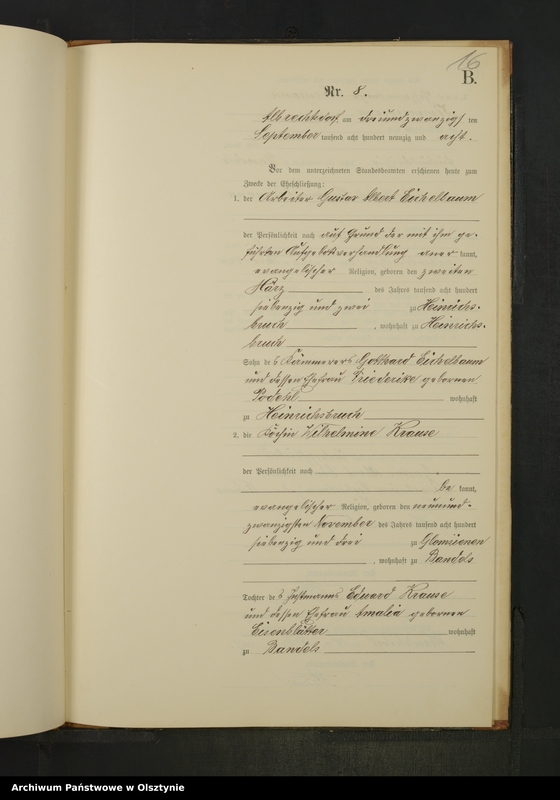 16
B.
Nr. 8.
Albrechtsdorf am dreiundzwanzigsten
September tausend acht hundert neunzig und acht.
Vor dem unterzeichneten Standesbeamten erschienen heute zum
Zwecke der Eheschließung:
1. der Arbeiter Gustav Albert Eichelbaum
der Persönlichkeit nach auf Grund der mit ihm ge-
führten Aufgebotsverhandlung aner kannt,
evangelischer Religion, geboren den zweiten
März des Jahres tausend acht hundert
siebenzig und zwei zu Heinrichs-
bruch, wohnhaft zu Heinrichs-
bruch
Sohn des Kämmerers Gotthard Eichelbaum
und dessen Ehefrau Friederike geborenen
Podehl wohnhaft
zu Heinrichsbruch
2. die Köchin Wilhelmine Krause
der Persönlichkeit nach
be kannt,
evangelischer Religion, geboren den neunund-
zwanzigsten November des Jahres tausend acht hundert
siebenzig und drei zu Glomsienen
, wohnhaft zu Bandels
Tochter des Instmanns Eduard Krause
und dessen Ehefrau Amalia geborenen
Eisenblätter wohnhaft
zu Bandels
Archiwum Państwowe w Olsztynie